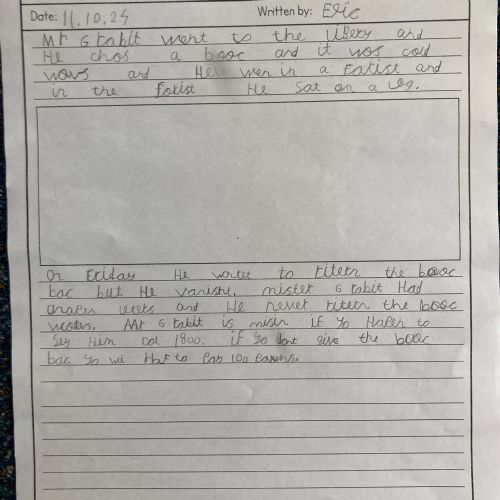 Date: 11.10.24 Written by: Eric
Mr G rabit went to the libery and
He chos a booc and it wos cold
wovs and He wen in a forist and
in the forist He sat on a log.
On Friday He wontet to ritern the booc
bac but He vanisht. mister G rabit Had
and He never ritern the booc
Mr G rabit is misin if yo Hapen to
sey Him col 1800. if yo dont give the booc
bac yo wil Haf to pay 100 pawns.